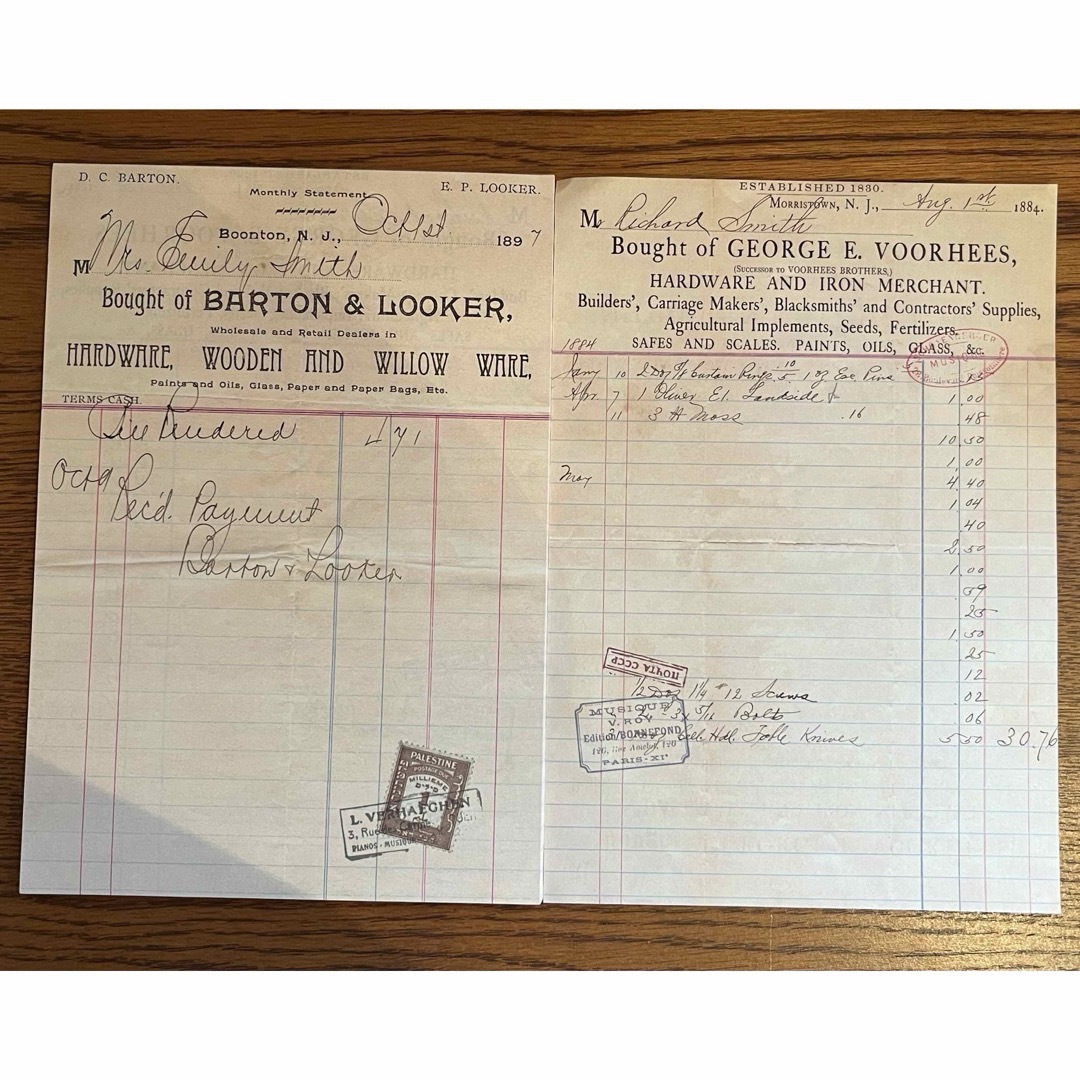 D. C. BARTON.
E. P. LOOKER.
Monthly Statement
Boonton, N. J., Oct 1st 1897
M Mrs. Emily Smith
Bought of BARTON & LOOKER,
Wholesale and Retail Dealers in
HARDWARE, WOODEN AND WILLOW WARE,
Paints and Oils, Glass, Paper and Paper Bags, Etc.
TERMS CASH.
Bill Rendered 4 71
Oct 9
Rec'd. Payment
Barton & Looker
PALESTINE
POSTAGE DUE
MILLIEME
1
L. VERHAEGHEN
3, Rue
PIANOS - MUSIQUE
ESTABLISHED 1830.
MORRISTOWN, N. J., Aug. 1st 1884.
M Richard Smith
Bought of GEORGE E. VOORHEES,
(SUCCESSOR TO VOORHEES BROTHERS,)
HARDWARE AND IRON MERCHANT.
Builders', Carriage Makers', Blacksmiths' and Contractors' Supplies,
Agricultural Implements, Seeds, Fertilizers.
SAFES AND SCALES. PAINTS, OILS, GLASS, &c.
MUSIQUE
1884
Jany 10 2 Doz Curtain Rings 10 5 1 oz Esc Pins
Apr 7 1 Oliver E1. Landside 1.00
11 3 # Moss .16 48
10 50
1.00
May 4 40
1.04
.40
2.50
1.00
.59
25
1.50
25
12
ПОЧТА СССР
1/2 Doz 1 1/4 " 12 Screws 02
3 x 5/16 Bolts 06
Hdl. Table Knives 5.50 30.76
MUSIQUE
V. ROY
Edition/BONNEFOND
126, Rue Amelot, 126
PARIS-XIe